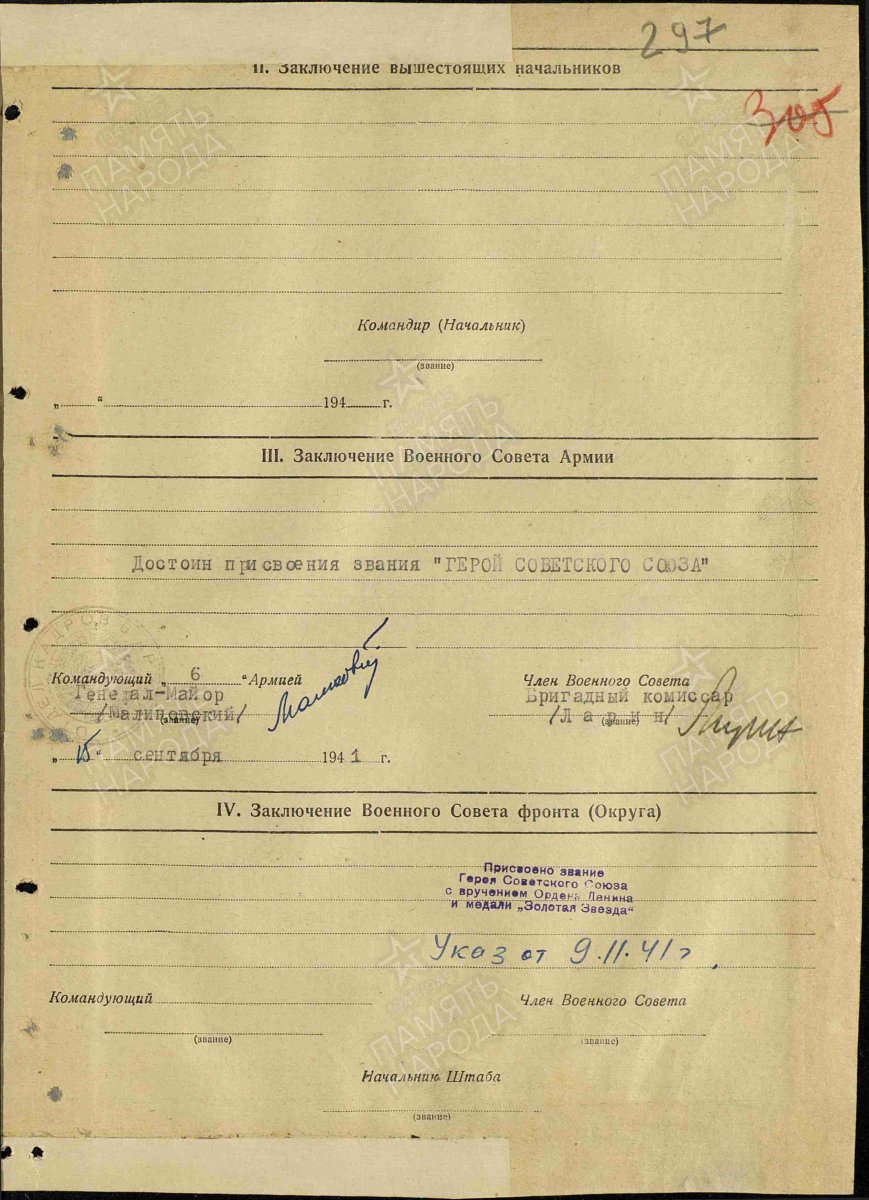 297
II. Заключение вышестоящих начальников
305
Командир (Начальник)
(звание)
„ “ 194 г.
III. Заключение Военного Совета Армии
Достоин присвоения звания "ГЕРОЙ СОВЕТСКОГО СОЮЗА"
Командующий „ 6 “ Армией
Член Военного Совета
Генерал-Майор
Бригадный комиссар
/Малиновский/
(звание)
/Ларин/
(звание)
„15“ сентября 1941 г.
IV. Заключение Военного Совета фронта (Округа)
Присвоено звание
Героя Советского Союза
с вручением Ордена Ленина
и медали „Золотая Звезда“
Указ от 9.11.41 г.
Командующий
Член Военного Совета
(звание)
(звание)
Начальник Штаба
(звание)
ПАМЯТЬ НАРОДА